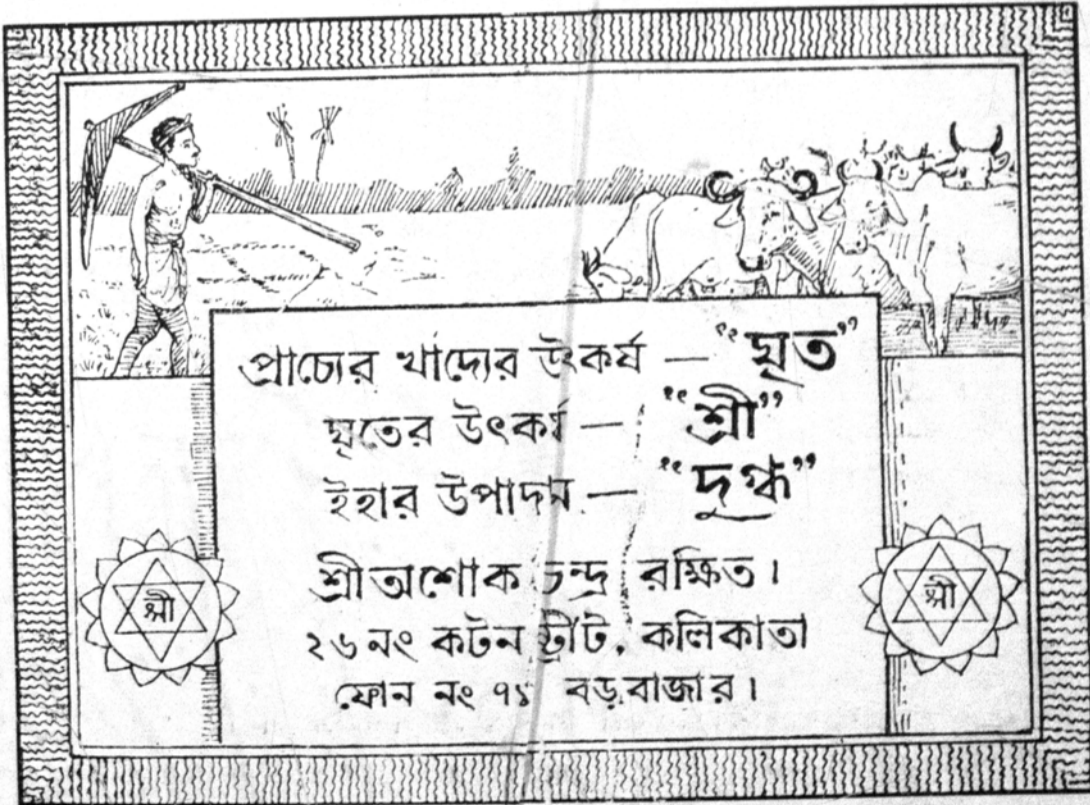 প্রাচ্যের খাদ্যের উৎকর্ষ — "ঘৃত"
ঘৃতের উৎকর্ষ — "শ্রী"
ইহার উপাদান — "দুগ্ধ"
শ্রী
শ্রী
শ্রীঅশোক চন্দ্র রক্ষিত।
২৬নং কটন ষ্ট্রীট, কলিকাতা
ফোন নং ৭১ বড়বাজার।